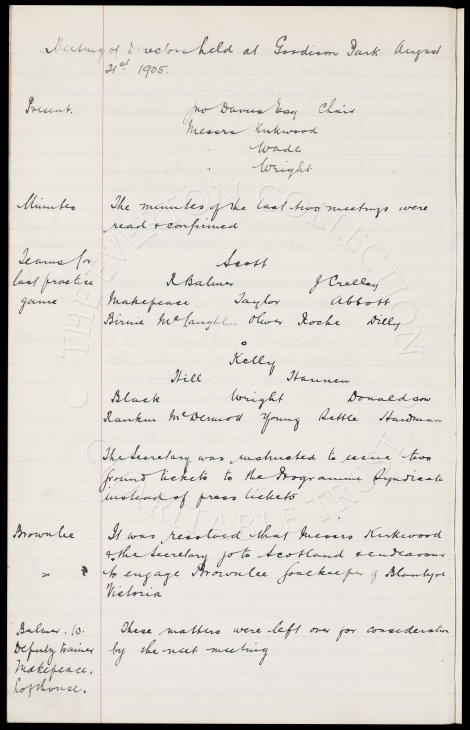 Meeting of Directors held at Goodison Park August
21st 1905.
Present. Jno Davies Esq Chair
Messrs Kirkwood
" Wade
" Wright
Minutes The minutes of the last two meetings were
read & confirmed
Teams for Scott
last practice R Balmer J Crelley
game Makepeace Taylor Abbott
Birnie McLaughlin Oliver Roche Dilly
o
Kelly
Hill Hannen
Black Wright Donaldson
Rankin McDermod Young Settle Hardman
The Secretary was instructed to issue two
ground tickets to the Programme Syndicate
instead of press tickets
Brownlee It was resolved that Messrs Kirkwood
& the Secretary go to Scotland & endeavour
" to engage Brownlee Goalkeeper of Blantyre
Victoria
Balmer. W. These matters were left over for consideration
Deputy trainer by the next meeting
Makepeace.
Lofthouse.
THE EVERTON COLLECTION
CHARITABLE TRUST